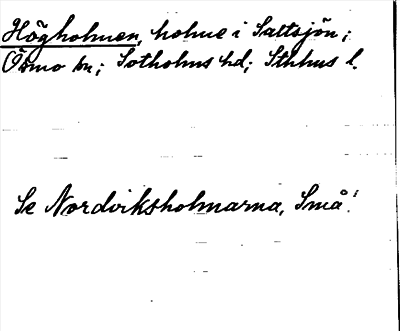 Högholmen, holme i Saltsjön;
Ösmo sn; Sotholms hd; Sthlms l.
Se Nordviksholmarna, Små!